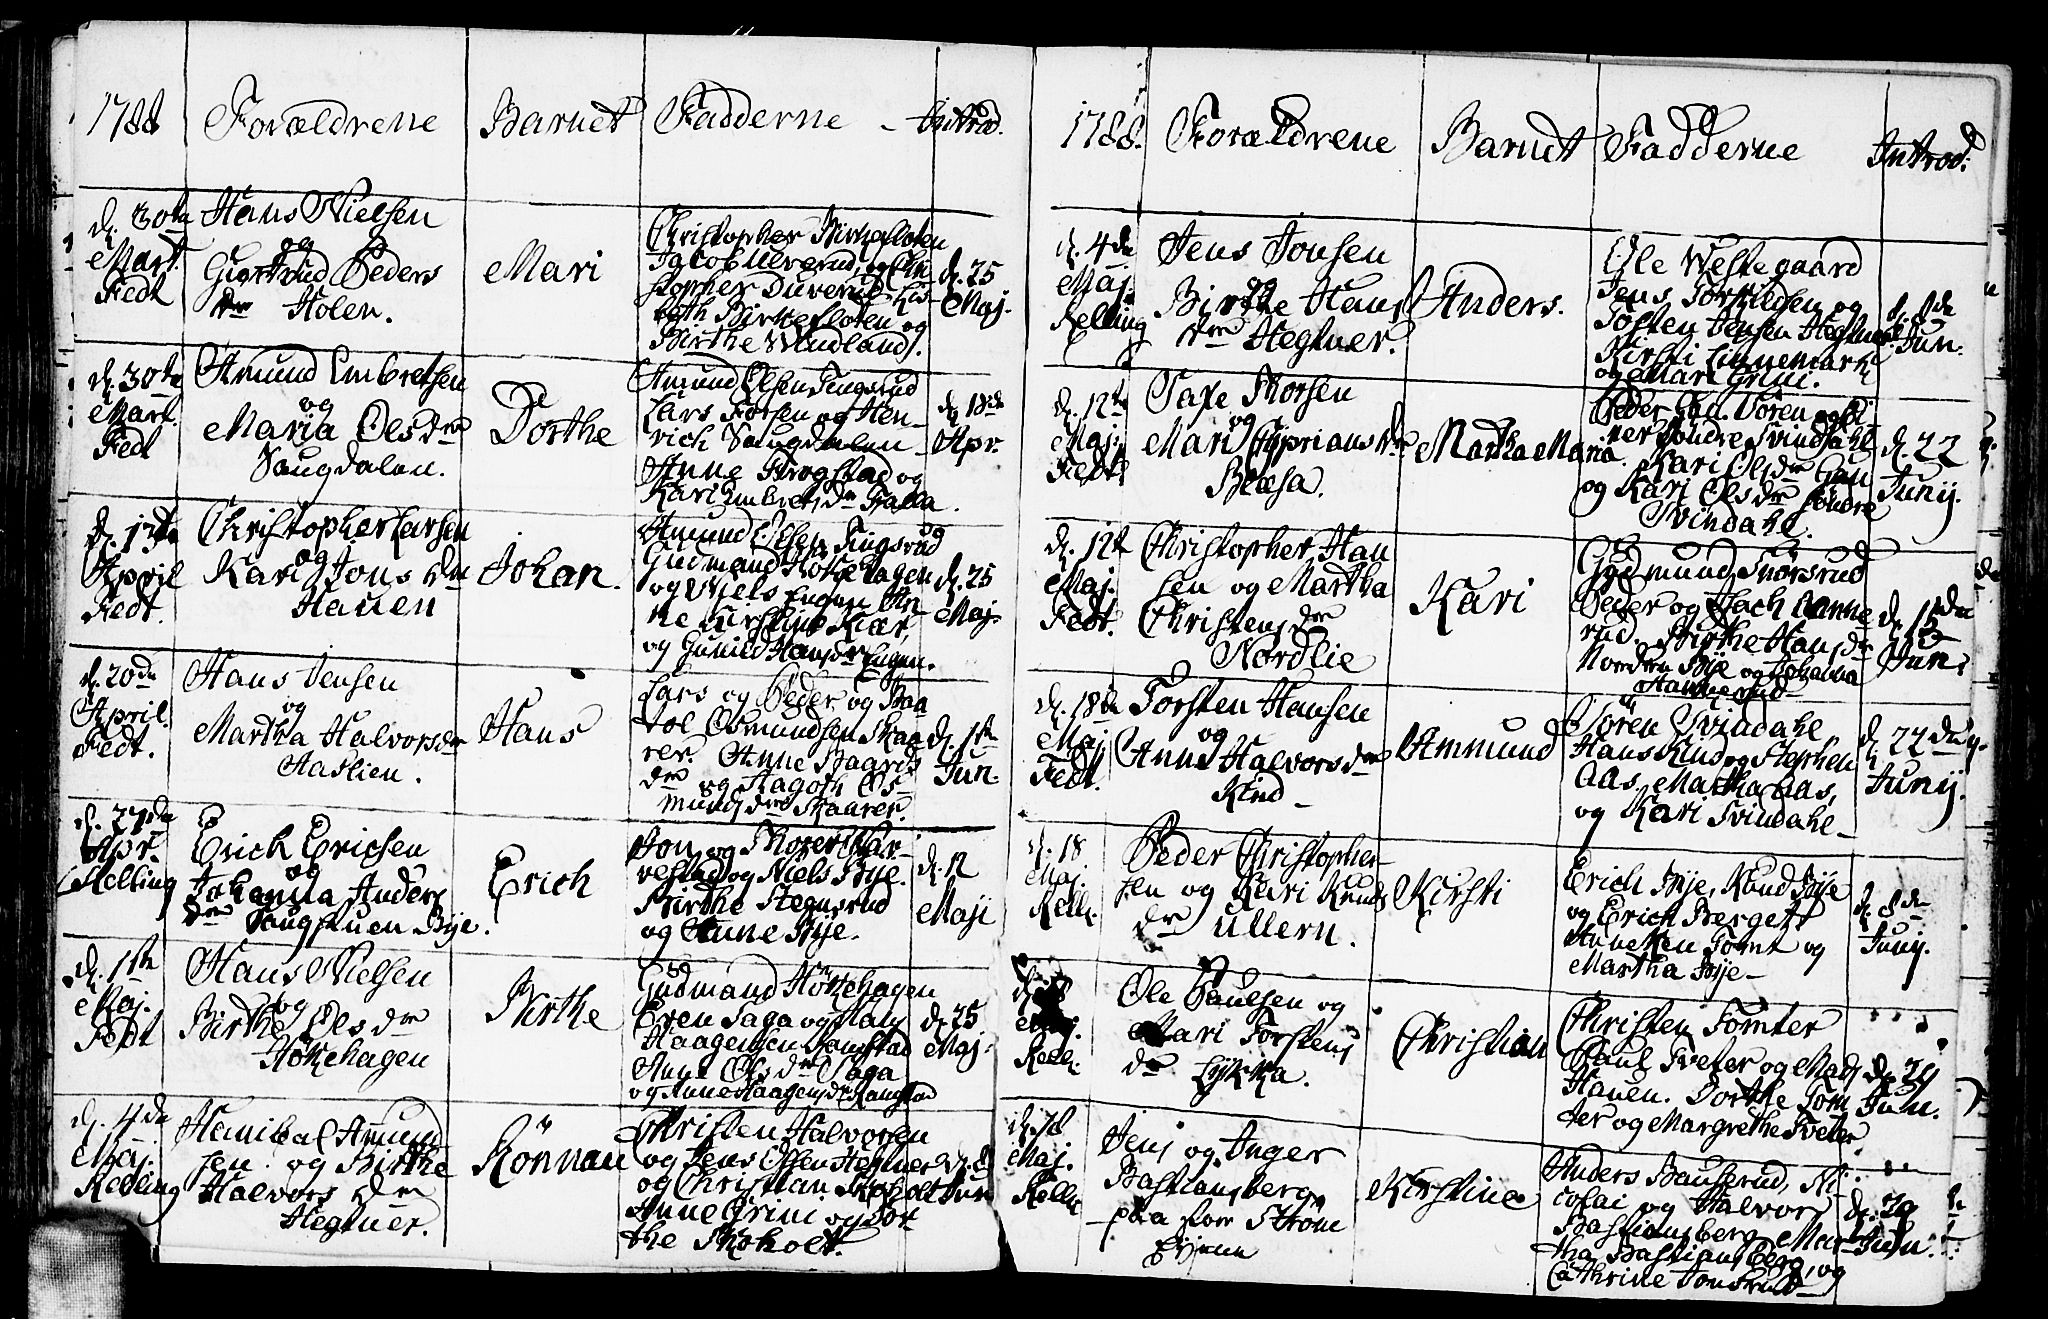 1788 Forældrene Barnet Fadderne - Introd.
d. 30te
Mart.
Fedt
Hans Nielsen
og
Guertrud Peders
dr Holen.
Mari
Christopher Birkesloten
Jacob Ulverud, og Chri
stopher Duverud, Lis-
beth Birkesloten og
Birthe Windland.
d. 25
Maj.
d. 30te
Mart.
Fedt
Amund Embretsen
og
Maria Olsdr
Saugdalen.
Dorthe
Amund Olsen Tingsrud
Lars Forsen og Hen-
rich Saugdalen
Anne Frogstad og
Kari Embretsdr Galla.
d. 18de
Apr.
d. 13de
April
Fedt.
Christopher Larsen
og
Kari Jonsdr
Hauen
Johan.
Amund Olsen Tingsrud
Gudmand Hötzehagen
og Niels Engen An
ne Kirstine Kiær,
og Gunild Hansdr Engen.
d. 25
Maj.
d. 20de
April.
Fedt.
Hans Jensen
og
Martha Halvorsdr
Haslien.
Hans
Lars og Peder og Baa
Osmundsen Skaa
rer. Anne Baards
dr og Hagoth Os-
mundsdr Skaarer.
d. 1ste
Jun.
d. 27de
Apr.
Kelling
Erich Ericsen
og
Johanna Anders
dr Saugstuen Bye.
Erich
Jon og Thorer Har-
vestad og Niels Bye.
Birthe Hegnsrud
og Anne Bye.
d. 12
Maji
d. 1ste
Maj.
Fedt
Hans Nielsen
og
Birthe Olsdr
Hötzehagen
Birthe
Gudmand Hötzehagen
Even Saga og Hans
Haagensen Ramstad
Anne Olsdr Saga
og Anne Haagensdr Ramstad
d. 25
Maj.
d. 4de
Maj.
Kelling
Hanibal Amund
sen og Birthe
Halvorsdr
Hegtuer.
Rönnau
Christen Halvorsen
og Jens Olsen Hegtuer
og Christian Skoholt
Anne Grini og Dor
the Skoholt.
d. 8
Jun
1788. Forældrene Barnet Fadderne Introd:
d. 4de
Maj.
Kelling
Jens Jonsen
og
Birthe Hans
dr Hegtuer.
Anders.
Ole Westegaard
Jens Torkildsen og
Tosten Jensen Hegtuer.
Kirsti Linnemark
og Mari Grini.
d. 8de
Jun.
d. 12te
Maj.
Fedt.
Saxe Thorsen
og
Mari Cypriansdr
Blæsa.
Martha Maria.
Peder Gad. Vören og
ner Sondre Svindahl
Kari Olsdr Gan
og Kari Olsdr Sondre
Svindahl.
d. 22
Junij.
d. 12te
Maj.
Fedt.
Christopher Han
sen og Martha
Christensdr
Nordlie
Kari
Gudmund Snörsrud
Peder og Hanne
rud. Birthe Hansdr
Nordre Bye og Johanna
Hannerud
d. 15de
Jun.
d. 18de
Maj
Fedt.
Torsten Hansen
og
Anne Halvorsdr
Kind -
Ammund
Sören Svindahl
Hans Kind og Stephen
Aas, Martha Aas,
og Kari Svindahl-
d. 22de
Junij.
d. 18
Maj.
Kell.
Peder Christopher-
sen og Kari Knuds
dr Ullern.
Kirsti
Erich Bye, Knud Bye
og Erich Berget
Anneken Tomt og
Martha Bye-
d. 8de
Junij.
Maj.
Kell.
Ole Paulsen og
Mari Torstens
dr Lykka.
Christian
Christen Tomter
Paul Sveter og Mads
Hauen. Dorthe Tom
ter og Margrethe Sveter
d. 29
Jun.
d. 18
Maj.
Kell.
Jens og Inger
Bastiansberg
paa Store Ström
Kirstine
Anders Bauserud, Ni-
colai og Halvor
Bastiansberg, Mar-
tha Bastiansberg, og
Cathrine Jonsrud
d. 29
Jun.